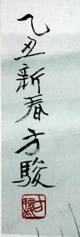 乙丑新春方駿